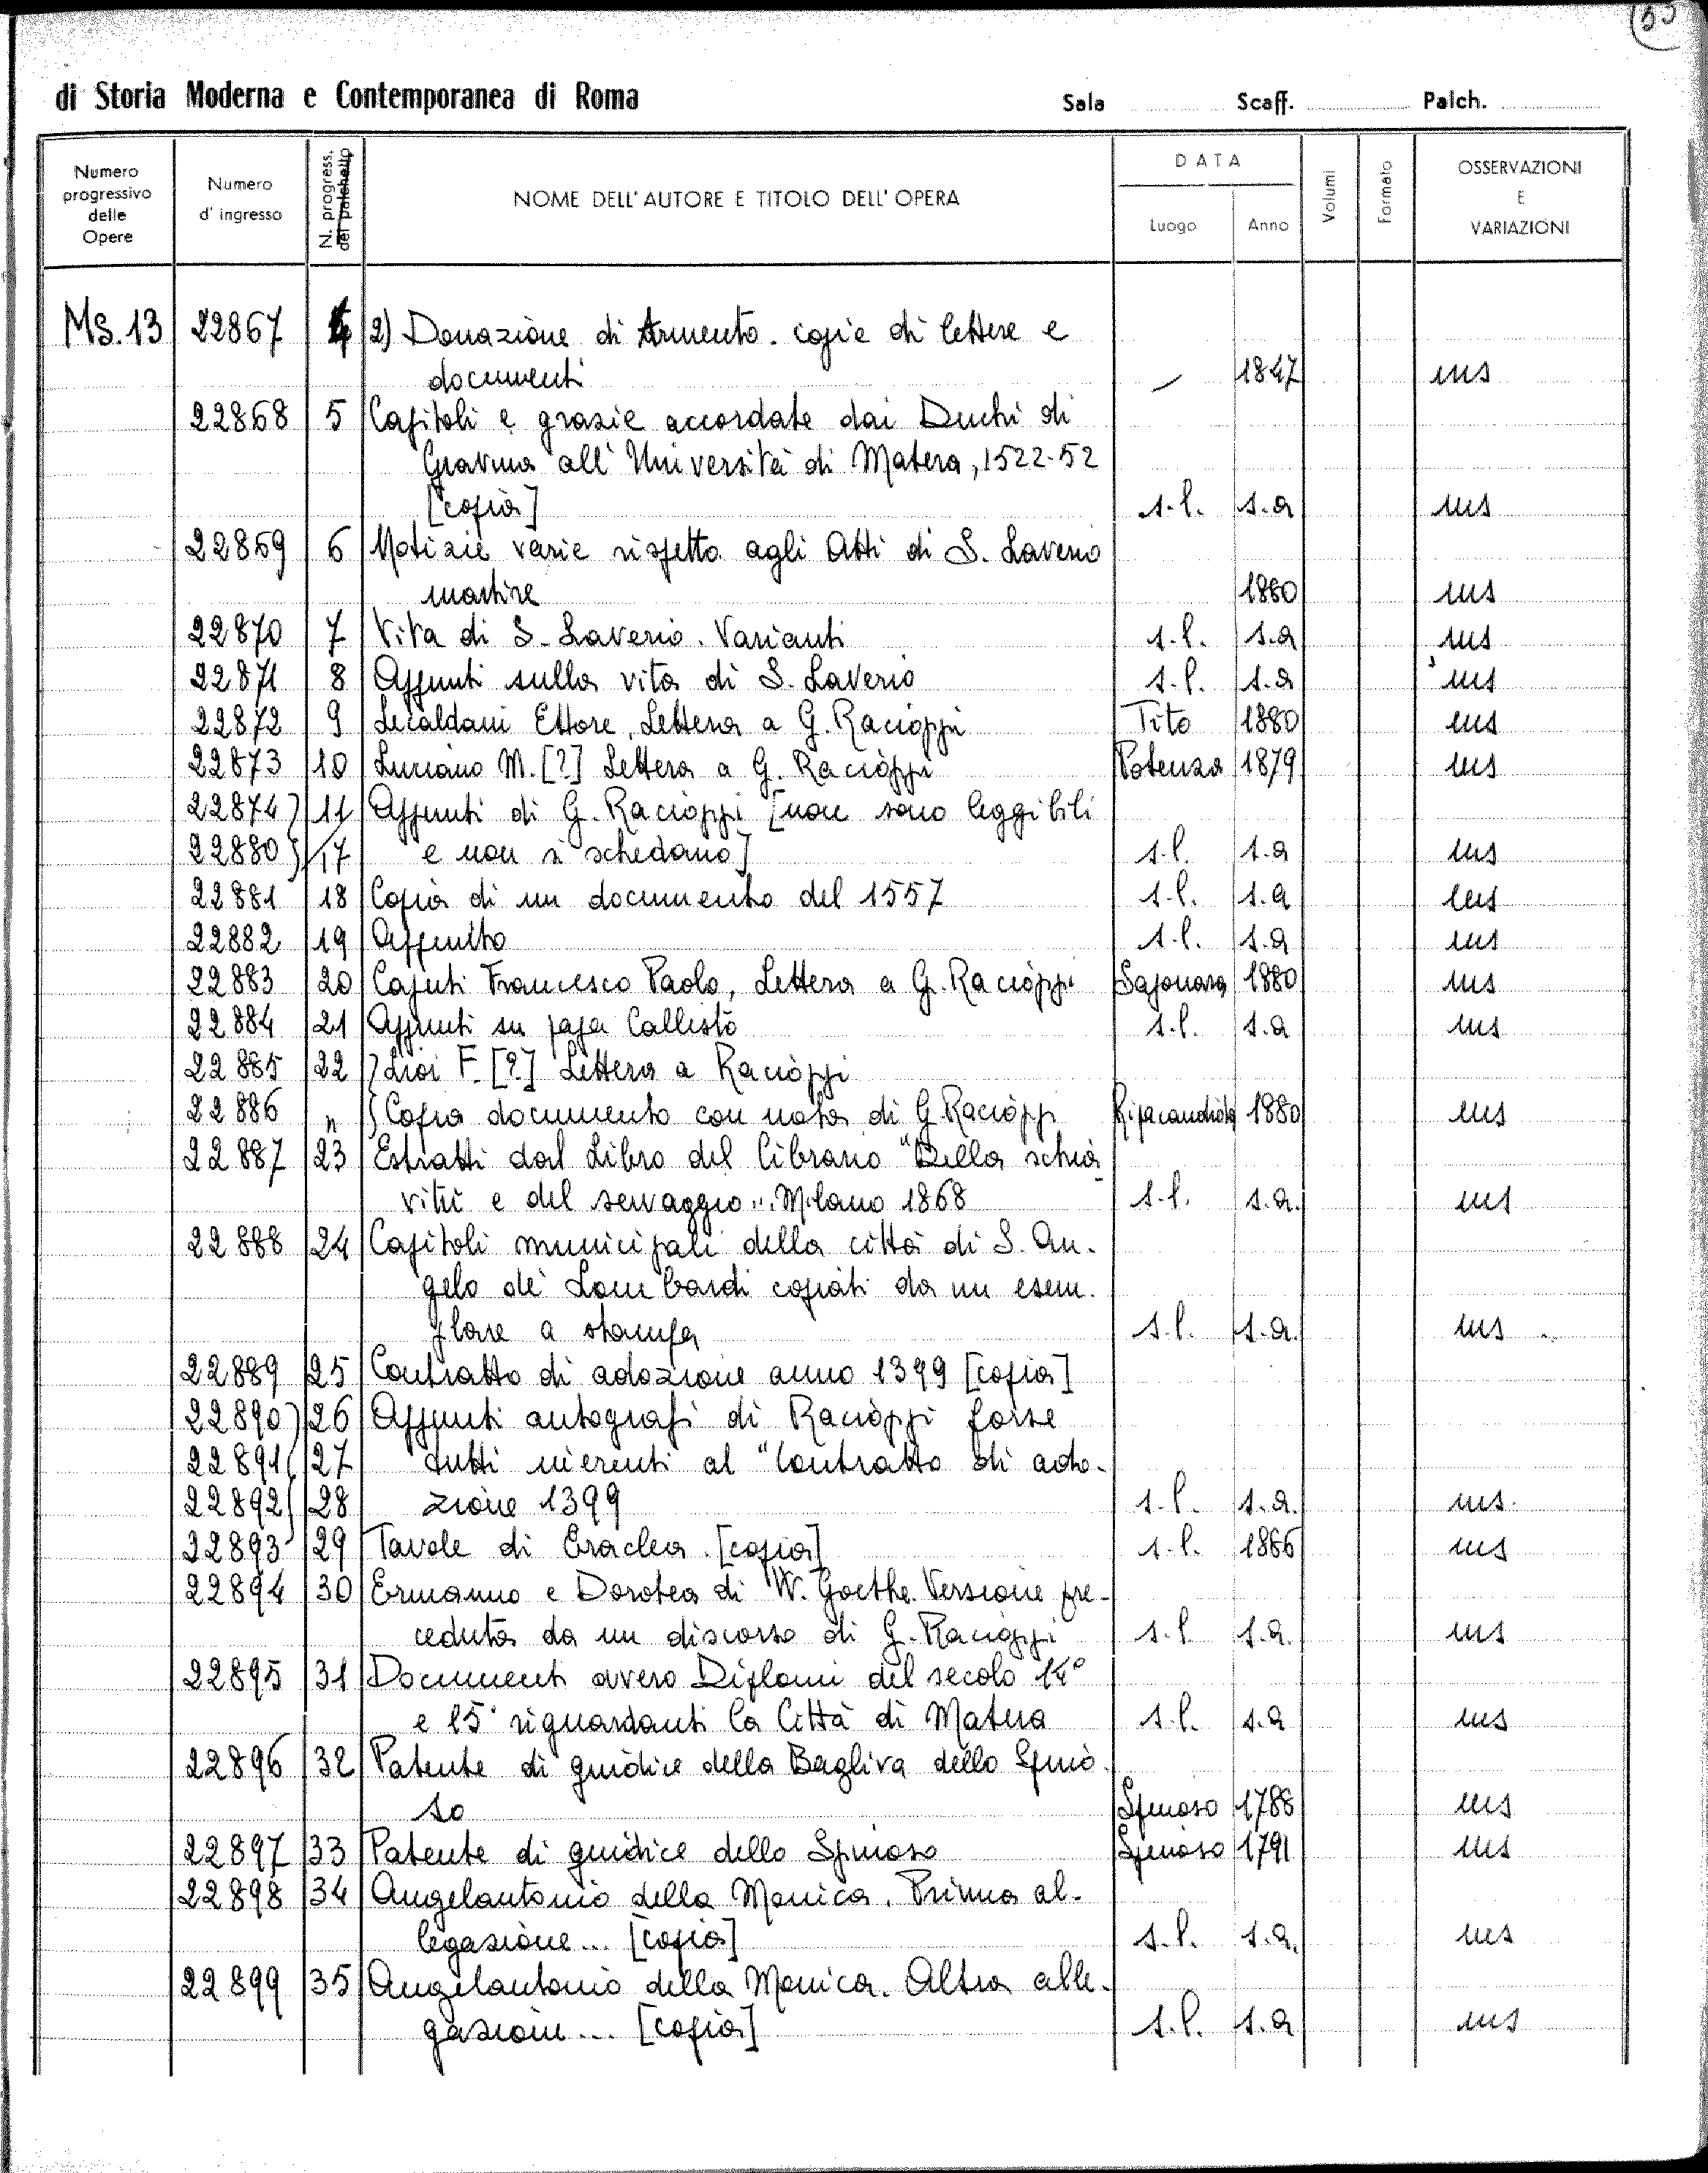 di Storia Moderna e Contemporanea di Roma Sala Scaff. Palch.
Numero progressivo delle Opere
Numero d'ingresso
N. progress. del palchetto
NOME DELL'AUTORE E TITOLO DELL'OPERA
DATA
Luogo Anno
Volumi
Formato
OSSERVAZIONI E VARIAZIONI
Ms. 13 22867 4 2) Donazione di Armento. copie di lettere e
documenti - 1847 ms
22868 5 Capitoli e grazie accordate dai Duchi di
Gravina all'Università di Matera, 1522-52
[copia] s.l. s.a ms
22869 6 Notizie varie rispetto agli Atti di S. Laverio
martire 1880 ms
22870 7 Vita di S. Laverio. Varianti s.l. s.a ms
22871 8 Appunti sulla vita di S. Laverio s.l. s.a ms
22872 9 Ettore, Lettera a G. Racioppi Tito 1880 ms
22873 10 Luciano M. [?] Lettera a G. Racioppi Potenza 1879 ms
22874 11 Appunti di G. Racioppi [non sono leggibili
22880 17 e non si schedano] s.l. s.a ms
22881 18 Copia di un documento del 1557 s.l. s.a ms
22882 19 Appunto s.l. s.a ms
22883 20 Cajuti Francesco Paolo, Lettera a G. Racioppi Saponara 1880 ms
22884 21 Appunti su papa Callisto s.l. s.a ms
22885 22 Lioi F. [?] Lettera a Racioppi
22886 " Copia documento con nota di G. Racioppi Ripacandida 1880 ms
22887 23 Estratti dal Libro del Cibrario "Della schia
vitù e del servaggio". Milano 1868 s.l. s.a. ms
22888 24 Capitoli municipali della città di S. An-
gelo de' Lombardi copiati da un esem-
plare a stampa s.l. s.a. ms
22889 25 Contratto di adozione anno 1399 [copia]
22890 26 Appunti autografi di Racioppi forse
22891 27 tutti inerenti al "Contratto di ado-
22892 28 zione 1399 s.l. s.a. ms.
22893 29 Tavole di Eraclea. [copia] s.l. 1866 ms
22894 30 Ermanno e Dorotea di W. Goethe. Versione pre-
ceduta da un discorso di G. Racioppi s.l. s.a. ms
22895 31 Documenti ovvero Diplomi del secolo 14°
e 15° riguardanti la Città di Matera s.l. s.a ms
22896 32 Patente di giudice della Bagliva dello Spino
so Spinoso 1788 ms
22897 33 Patente di giudice dello Spinoso Spinoso 1791 ms
22898 34 Angelantonio della Monica. Prima al-
legazione... [copia] s.l. s.a. ms
22899 35 Angelantonio della Monica. Altra alle-
gazione... [copia] s.l. s.a ms